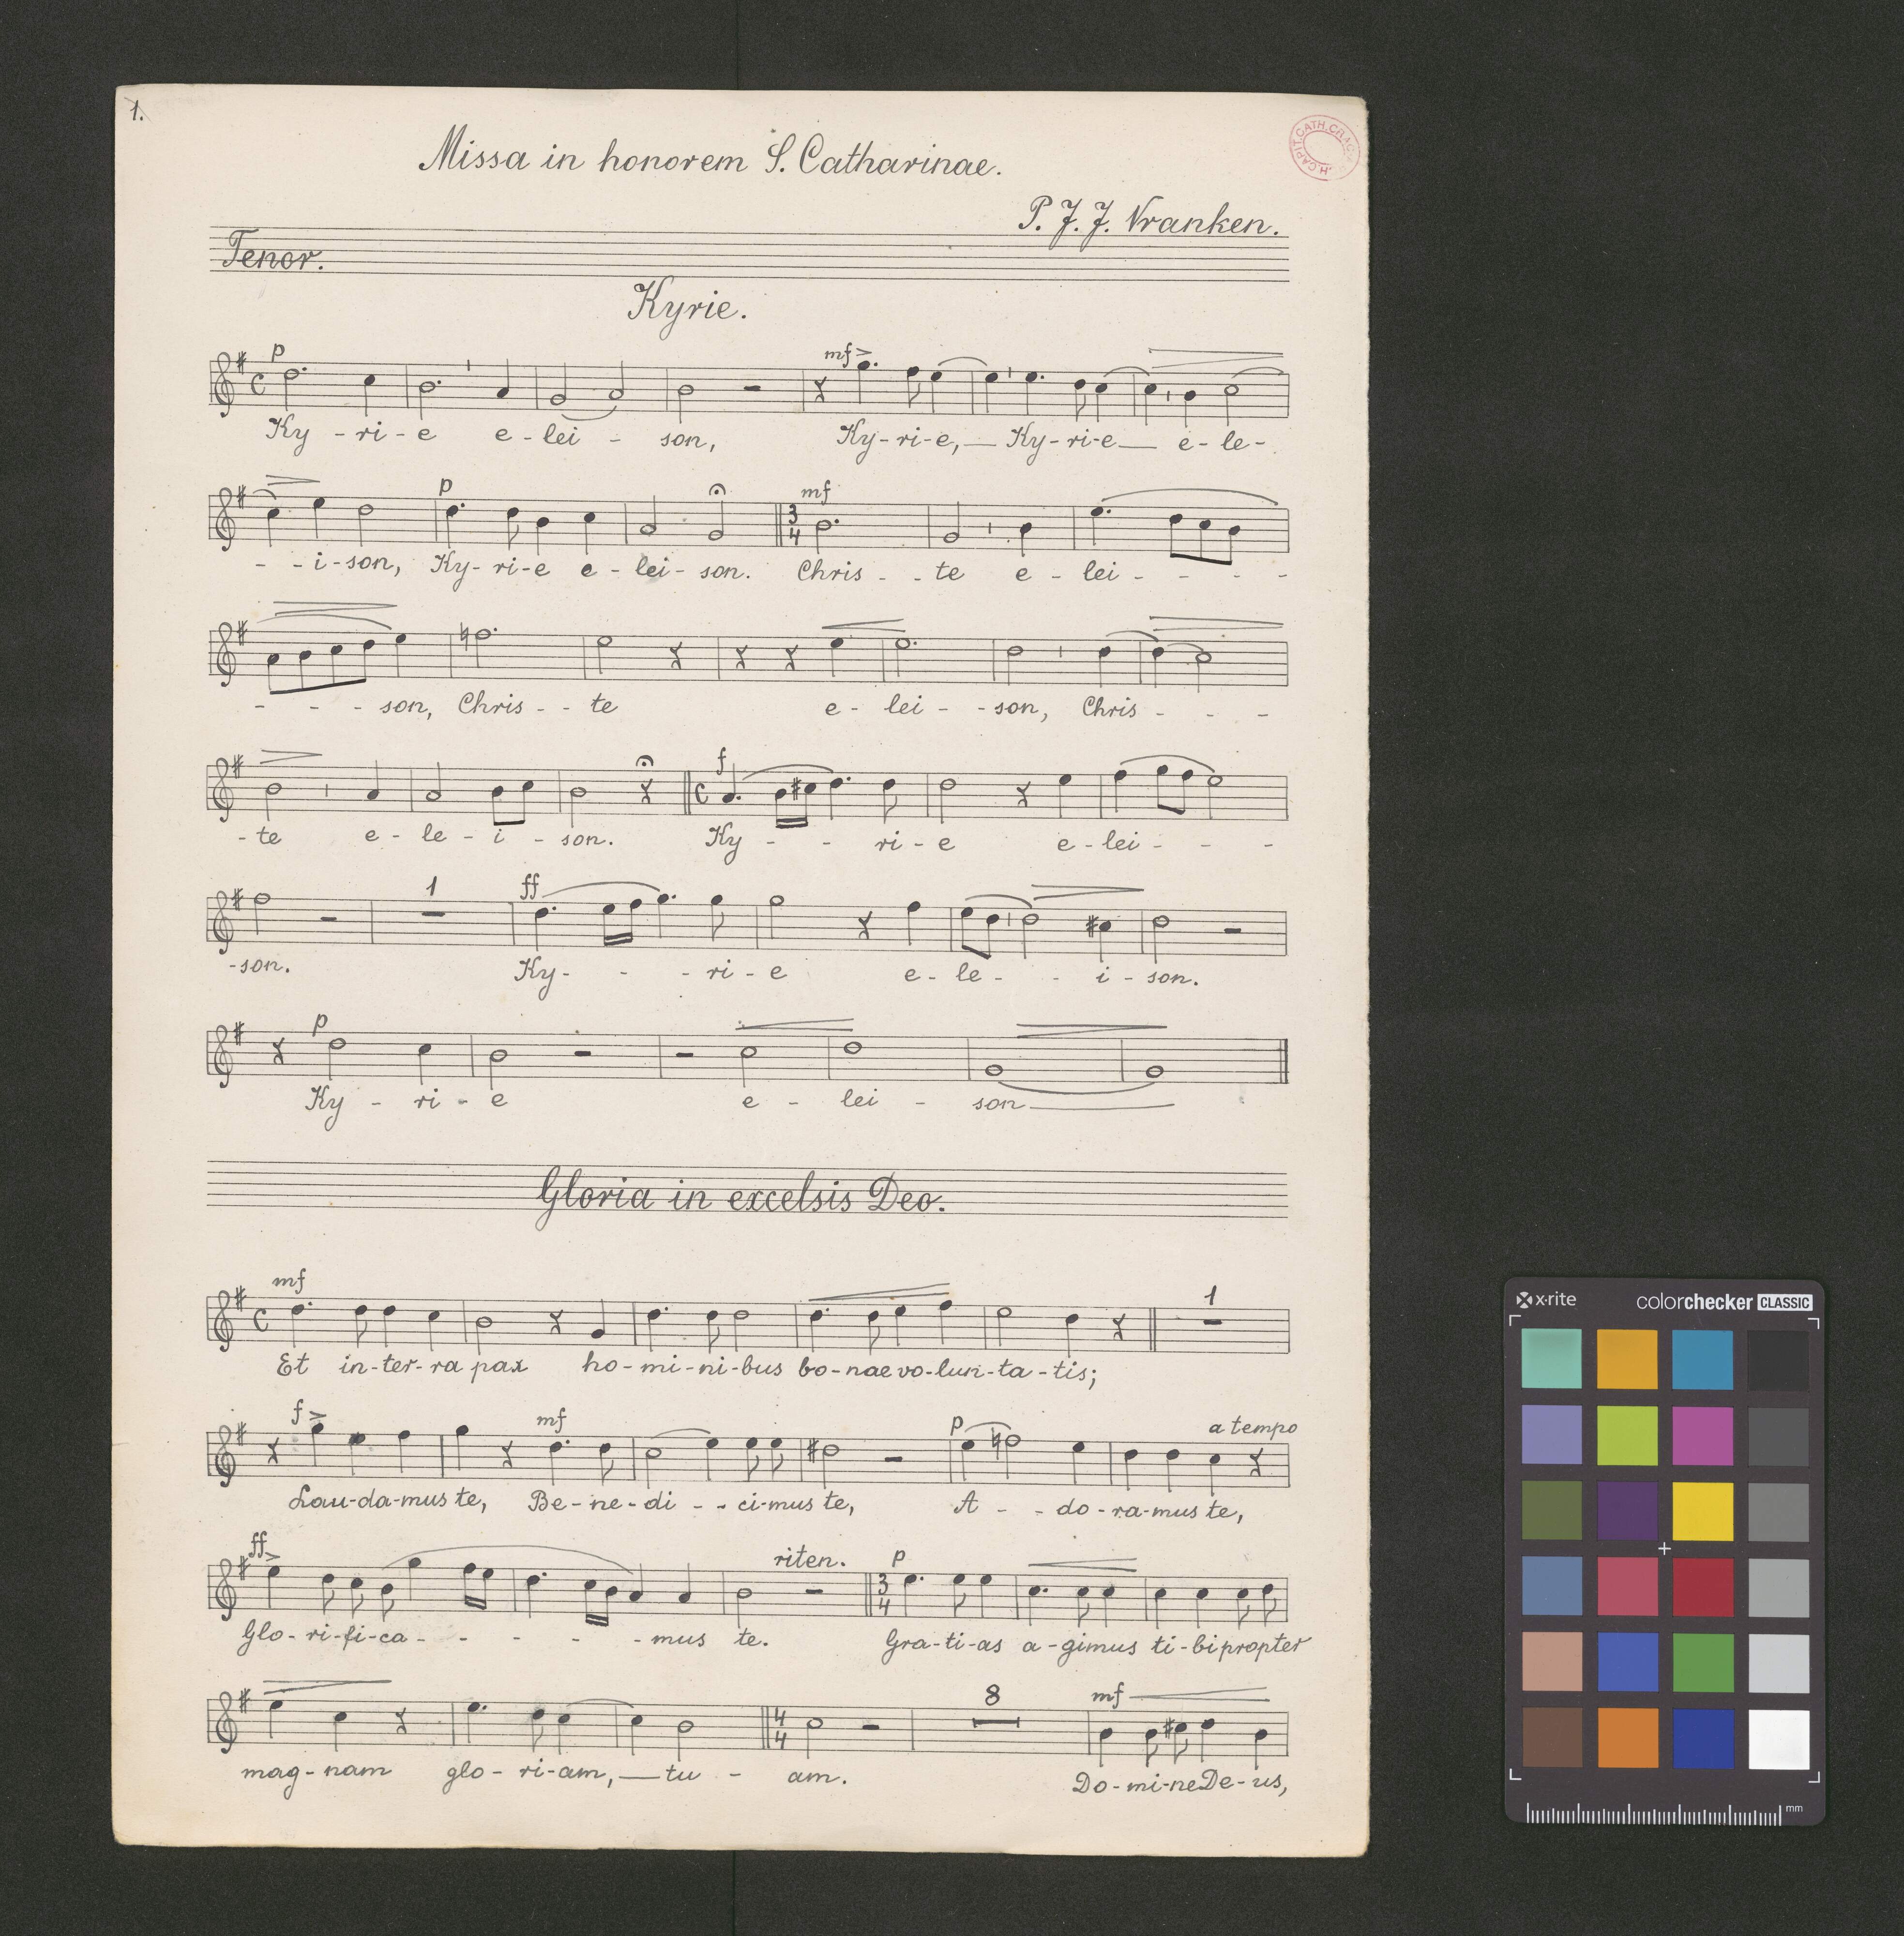 1.
Missa in honorem S. Catharinae.
P. J. J. Vranken.
Tenor.
Kyrie.
p mf
Ky - ri - e e - lei - son, Ky - ri - e, Ky - ri - e e - le -
p mf
- - i - son, Ky - ri - e e - lei - son. Chris - - te e - lei - - - -
- - - son, Chris - - te e - lei - - son, Chris - - -
f
- te e - le - i - son. Ky - - ri - e e - lei - - -
1 ff
- son. Ky - - - ri - e e - le - - i - son.
p
Ky - ri - e e - lei - son
Gloria in excelsis Deo.
mf 1
Et in - ter - ra pax ho - mi - ni - bus bo - nae vo - lun - ta - tis;
f mf p a tempo
Lau - da - mus te, Be - ne - di - - ci - mus te, A - - do - ra - mus te,
ff riten. p
Glo - ri - fi - ca - - - - - mus te. Gra - ti - as a - gimus ti - bi propter
8 mf
mag - nam glo - ri - am, tu - am. Do - mi - ne De - us,
x-rite colorchecker CLASSIC
mm